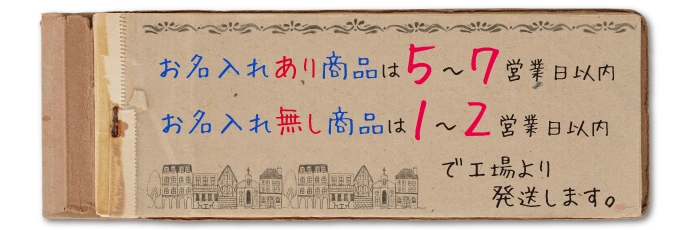 お名入れあり商品は5～7営業日以内
お名入れ無し商品は1～2営業日以内
で工場より
発送します。